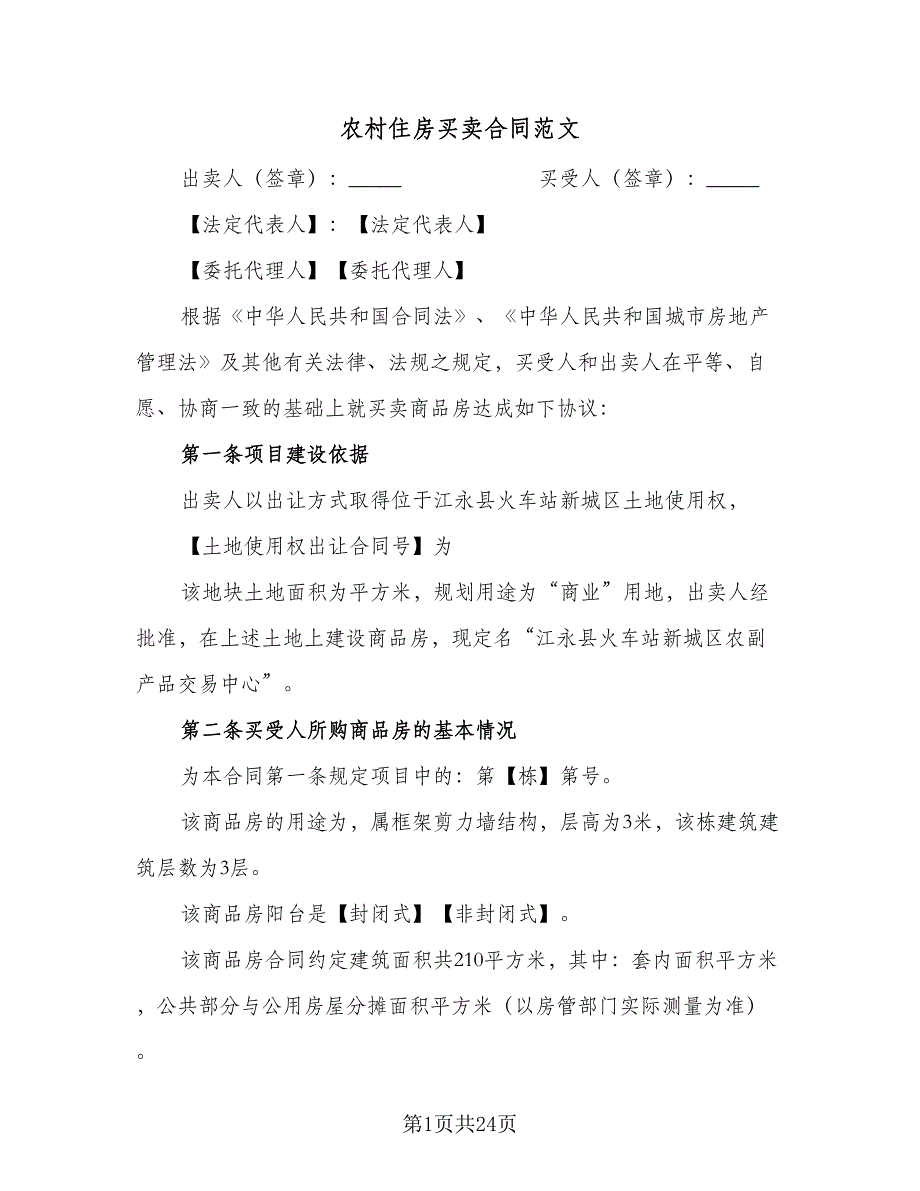 农村住房买卖合同范文
出卖人（签章）：_____ 买受人（签章）：_____
【法定代表人】：【法定代表人】
【委托代理人】【委托代理人】
根据《中华人民共和国合同法》、《中华人民共和国城市房地产
管理法》及其他有关法律、法规之规定，买受人和出卖人在平等、自
愿、协商一致的基础上就买卖商品房达成如下协议：
第一条项目建设依据
出卖人以出让方式取得位于江永县火车站新城区土地使用权，
【土地使用权出让合同号】为
该地块土地面积为平方米，规划用途为“商业”用地，出卖人经
批准，在上述土地上建设商品房，现定名“江永县火车站新城区农副
产品交易中心”。
第二条买受人所购商品房的基本情况
为本合同第一条规定项目中的：第【栋】第号。
该商品房的用途为，属框架剪力墙结构，层高为3米，该栋建筑建
筑层数为3层。
该商品房阳台是【封闭式】【非封闭式】。
该商品房合同约定建筑面积共210平方米，其中：套内面积平方米
，公共部分与公用房屋分摊面积平方米（以房管部门实际测量为准）
。
第1页共24页